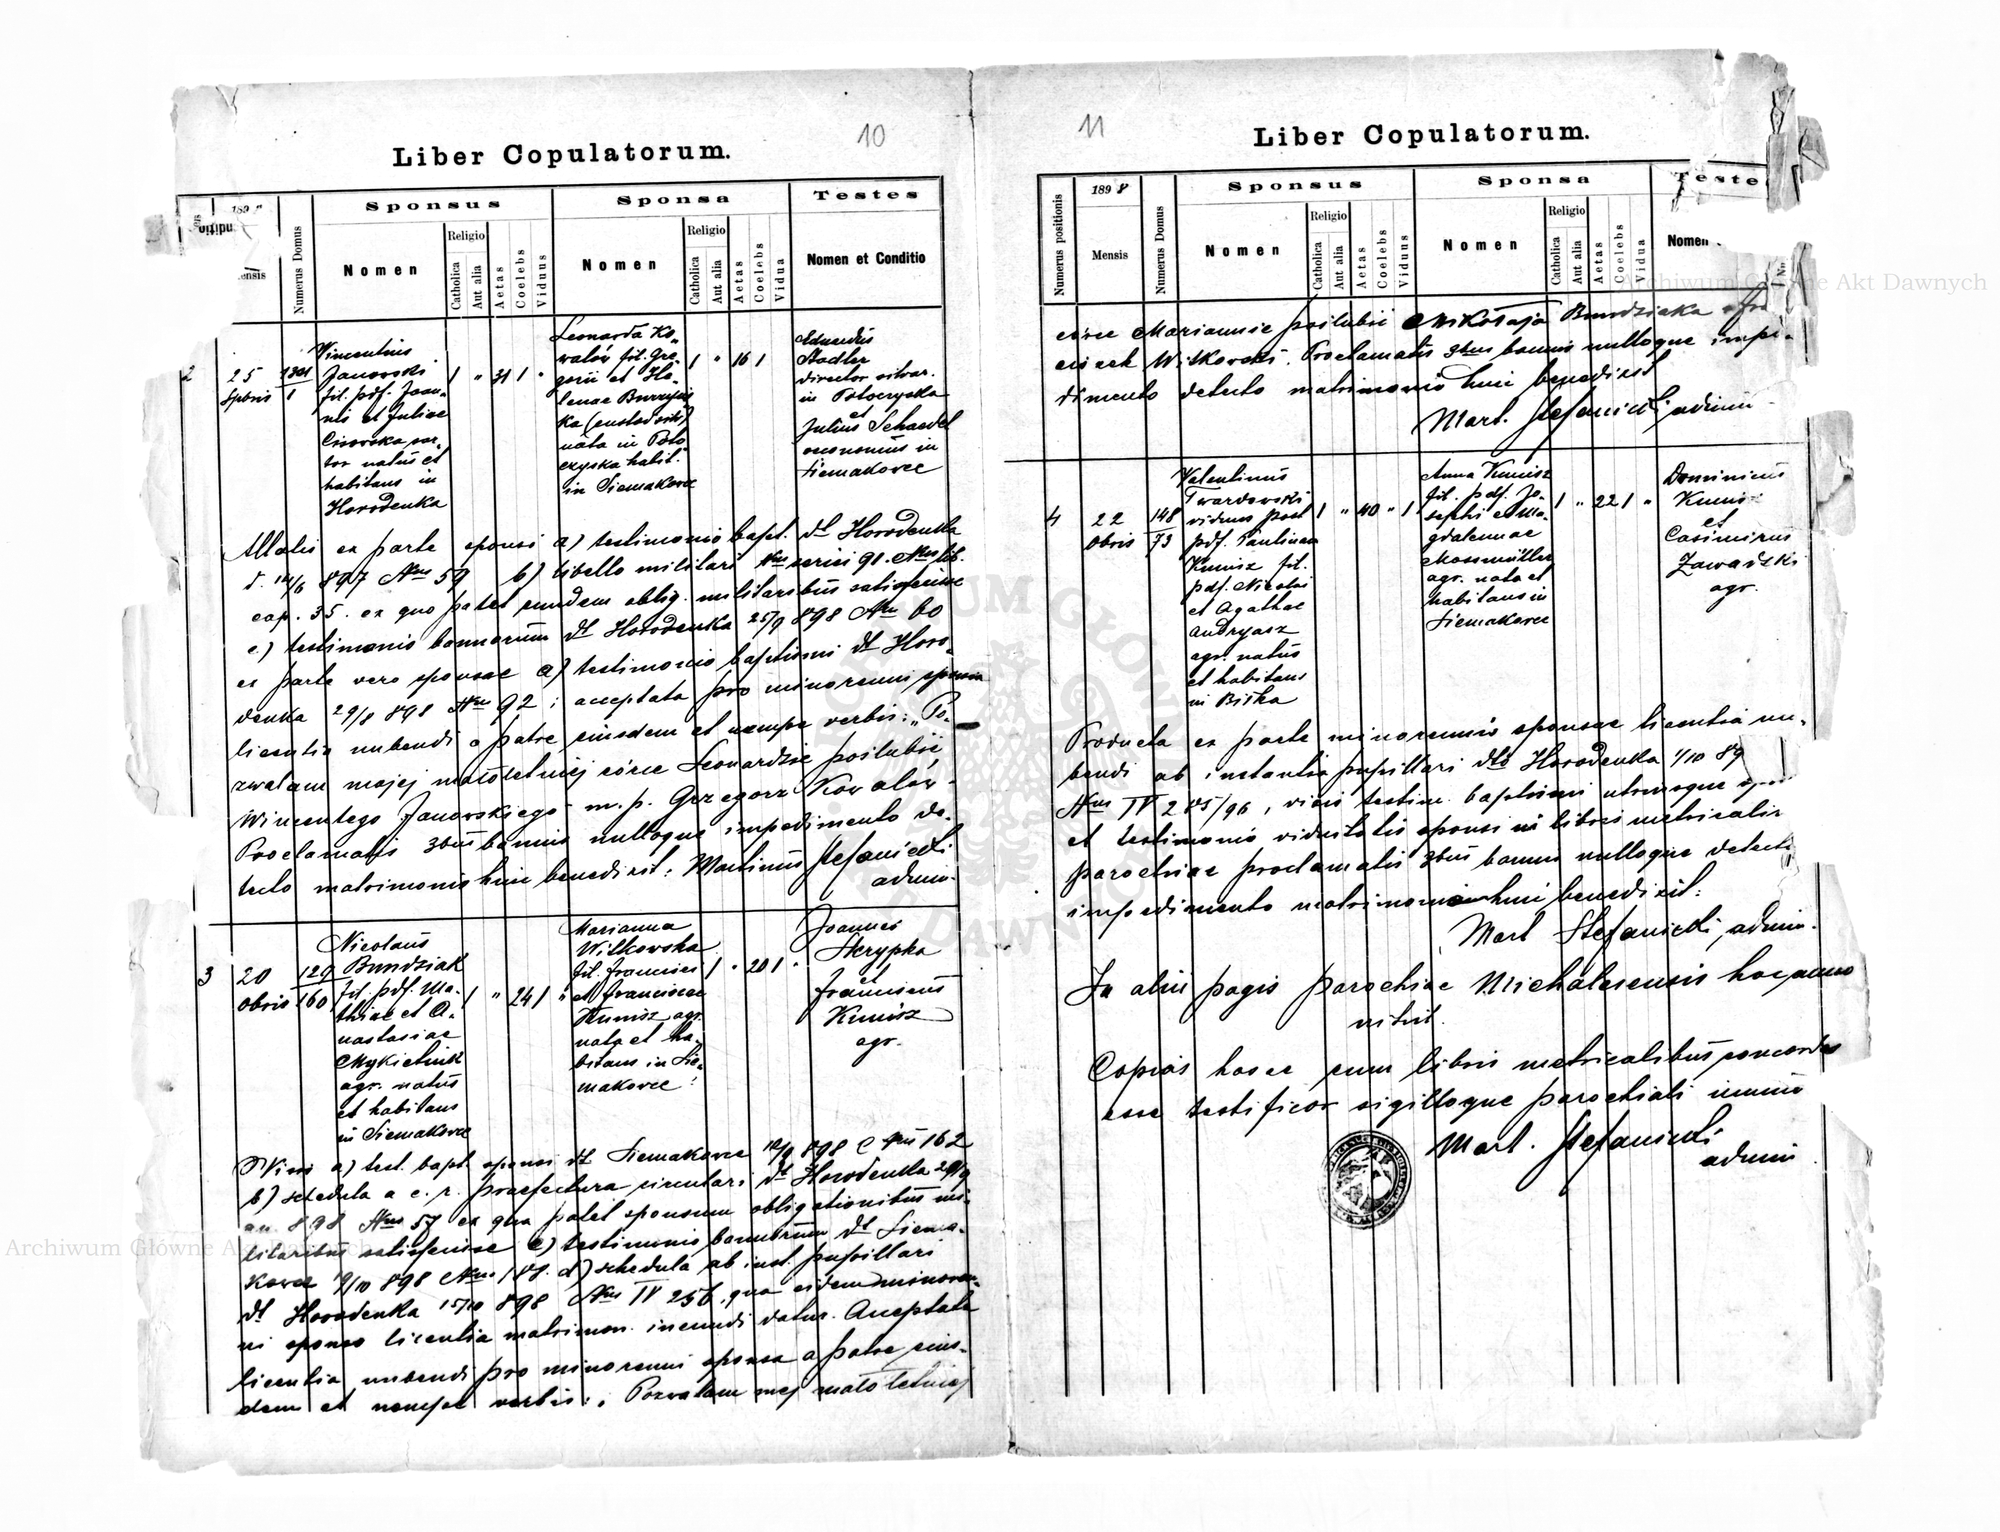 10
Liber Copulatorum.
189
Mensis
Numerus Domus
Sponsus
Nomen
Religio
Catholica
Aut alia
Aetas
Coelebs
Viduus
Sponsa
Nomen
Religio
Catholica
Aut alia
Aetas
Coelebs
Vidua
Testes
Nomen et Conditio
2
25
1
Vincentius
Janowski
fil. pdf. Joan-
nis et Juliae
natus et
habitans in
Horodenka
31
Leonarda Ko-
walów fil. Gre-
gorii et He-
lenae
nata in Poto
czyska habit.
in Siemakowce
16
Stadler
director silvar.
in Potoczyska
et
Julius Schaedel
oeconomus in
Siemakowce
Allatis ex parte sponsi a) testimonio bapt. dt Horodenka
d. 14/6 897 Nro 59 b) libello militari
cap. 35. ex quo patet eundem oblig. militaribus satisfecisse
c) testimonio bannorum dt Horodenka 25/9 898 Nro 60
ex parte vero sponsae a) testimonio baptismi dt Horo-
denka 29/8 898 Nro 92; acceptata pro minorenni sponsa
licentia nubendi a patre eiusdem et nempe verbis: „Po-
zwalam mojej małoletniej córce Leonardzie poślubić
Wincentego Janowskiego m. p. Grzegorz Kowalów
Proclamatis 3bus bannis nulloque impedimento de-
tecto matrimonio huic benedixit: Martinus Stefanicki
admin.
3
20
Obris
129
160
Nicolaus
Bundziak
fil. pdf. Ma-
thiae et A-
nastasiae
agr. natus
et habitans
in Siemakowce
24
Marianna
Witkowska
fil. Francisci
et Franciscae
Kunisz agr.
nata et ha-
bitans in Sie-
makowce
20
Joannes
Skrypka
et
Franciscus
Kunisz
agr.
Visis a) test. bapt. sponsi dt Siemakowce 898 162
b) schedula a c. r. praefectura circulari dt Horodenka
898 Nro 57 ex qua patet sponsum obligationibus mi-
litaribus satisfecisse c) testimonio bannorum dt Siema-
kowce 898 d) schedula ab inst. pupillari
dt Horodenka 15/10 898 Nro IV 256, qua eidem minoren-
ni sponso licentia matrimon. ineundi datur. Acceptata
licentia nubendi pro minorenni sponsa a patre eius-
dem et nempe verbis: „Pozwalam mej małoletniej
11
Liber Copulatorum.
Numerus positionis
1898
Mensis
Numerus Domus
Sponsus
Nomen
Religio
Catholica
Aut alia
Aetas
Coelebs
Viduus
Sponsa
Nomen
Religio
Catholica
Aut alia
Aetas
Coelebs
Vidua
Teste
Nomen
córce Mariannie poślubić Mikołaja Bundziaka
Witkowski. Proclamatis 3bus bannis nulloque impe-
dimento detecto matrimonio huic benedixit
Mart. Stefanicki, admin
4
22
Obris
148
73
Valentinus
Twardowski
viduus post
pdf. Paulinam
Kunisz fil.
pdf. Nicolai
et Agathae
Andryasz
agr. natus
et habitans
in Biłka
40
Anna Kunisz
fil. pdf. Jo-
sephi et Ma-
gdalenae
Mossmüller
agr. nata et
habitans in
Siemakowce
22
Dominicus
Kunisz
et
Casimirus
Zawadzki
agr.
Producta ex parte minorennis sponsae licentia nu-
bendi ab instantia pupillari dto Horodenka 1/10 89
Nro IV 205/96, visis testim. baptismi utriusque
et testimonio viduitatis sponsi in libris metricalib
parochiae proclamatis 3bus bannis nulloque detecto
impedimento matrimonio huic benedixit:
Mart Stefanicki, admin.
In aliis pagis parochiae Michalcensis hoc anno
Copias hasce cum libris metricalibus concordes
esse testificor sigilloque parochiali munio
Mart. Stefanicki
admin
Archiwum Główne Akt Dawnych
Archiwum Główne Akt Dawnych